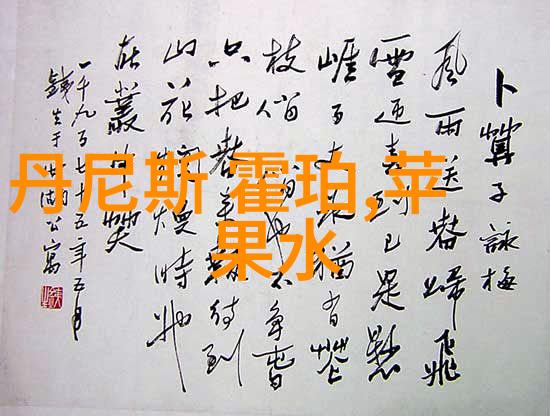 卜算子詠梅
風雨送春歸飛
雪迎春到已是懸
崖百丈冰猶有花
枝俏俏也不爭春
只把春來報待到
山花爛熳時她
在叢中笑
一千九百七十五年五月
于湖公寓
丹尼斯 霍珀,苹
果水